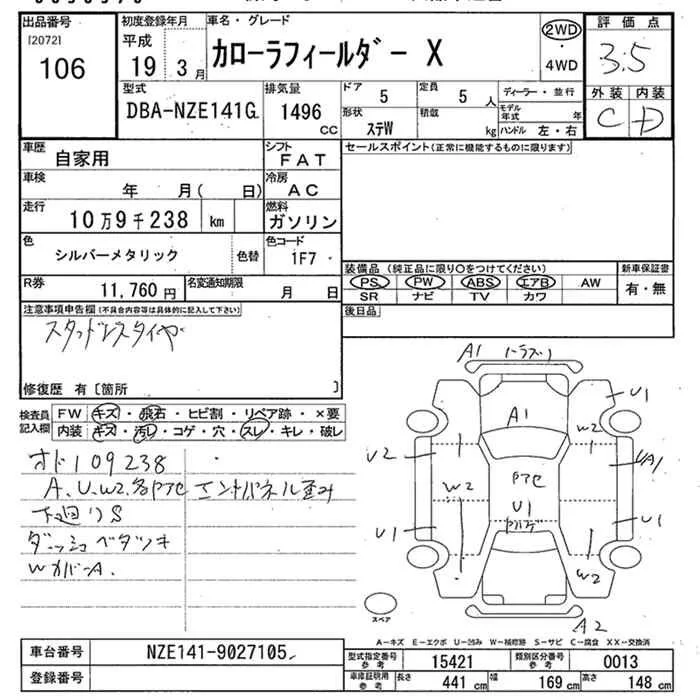 出品番号
[2072]
106
初度登録年月
平成
19年3月
車名・グレード
カローラフィールダー X
2WD
・
4WD
評価点
3.5
外装 内装
C D
型式
DBA-NZE141G
排気量
1496
cc
ドア 5
定員 5 人
ディーラー・並行
形状 ステW
積載 kg
モデル年式 年
ハンドル 左・右
車歴 自家用
シフト FAT
車検 年 月( 日)
冷房 AC
走行 10万9千238 km
燃料 ガソリン
色 シルバーメタリック
色替
色コード 1F7
R券 11,760円
名変通知期限 月 日
セールスポイント(正常に機能するものに限ります)
装備品 (純正品に限り○をつけてください)
新車保証書
PS PW ABS エアB AW
SR ナビ TV カワ
有・無
後日品
注意事項申告欄(不具合内容等は具体的に記入して下さい)
スタッドレスタイヤ
修復歴 有〔箇所 〕
検査員記入欄
FW キズ・飛石・ヒビ割・リペア跡・×要
内装 キズ・汚レ・コゲ・穴・スレ・キレ・破レ
オド109238
A、U、W2、各PアセE エンドパネル歪み
下廻りS
ダッシュベタツキ
WカバーA.
A1
U1
A1
W2
U2
UA1
W2
U1
U1
U1
W2
A2
スペア
A-キズ E-エクボ U-凹み W-補修跡 S-サビ C-腐食 XX-交換済
車台番号 NZE141-9027105
登録番号
型式指定番号 参考 15421
類別区分番号 参考 0013
車庫証明用 参考
長さ 441 cm
幅 169 cm
高さ 148 cm